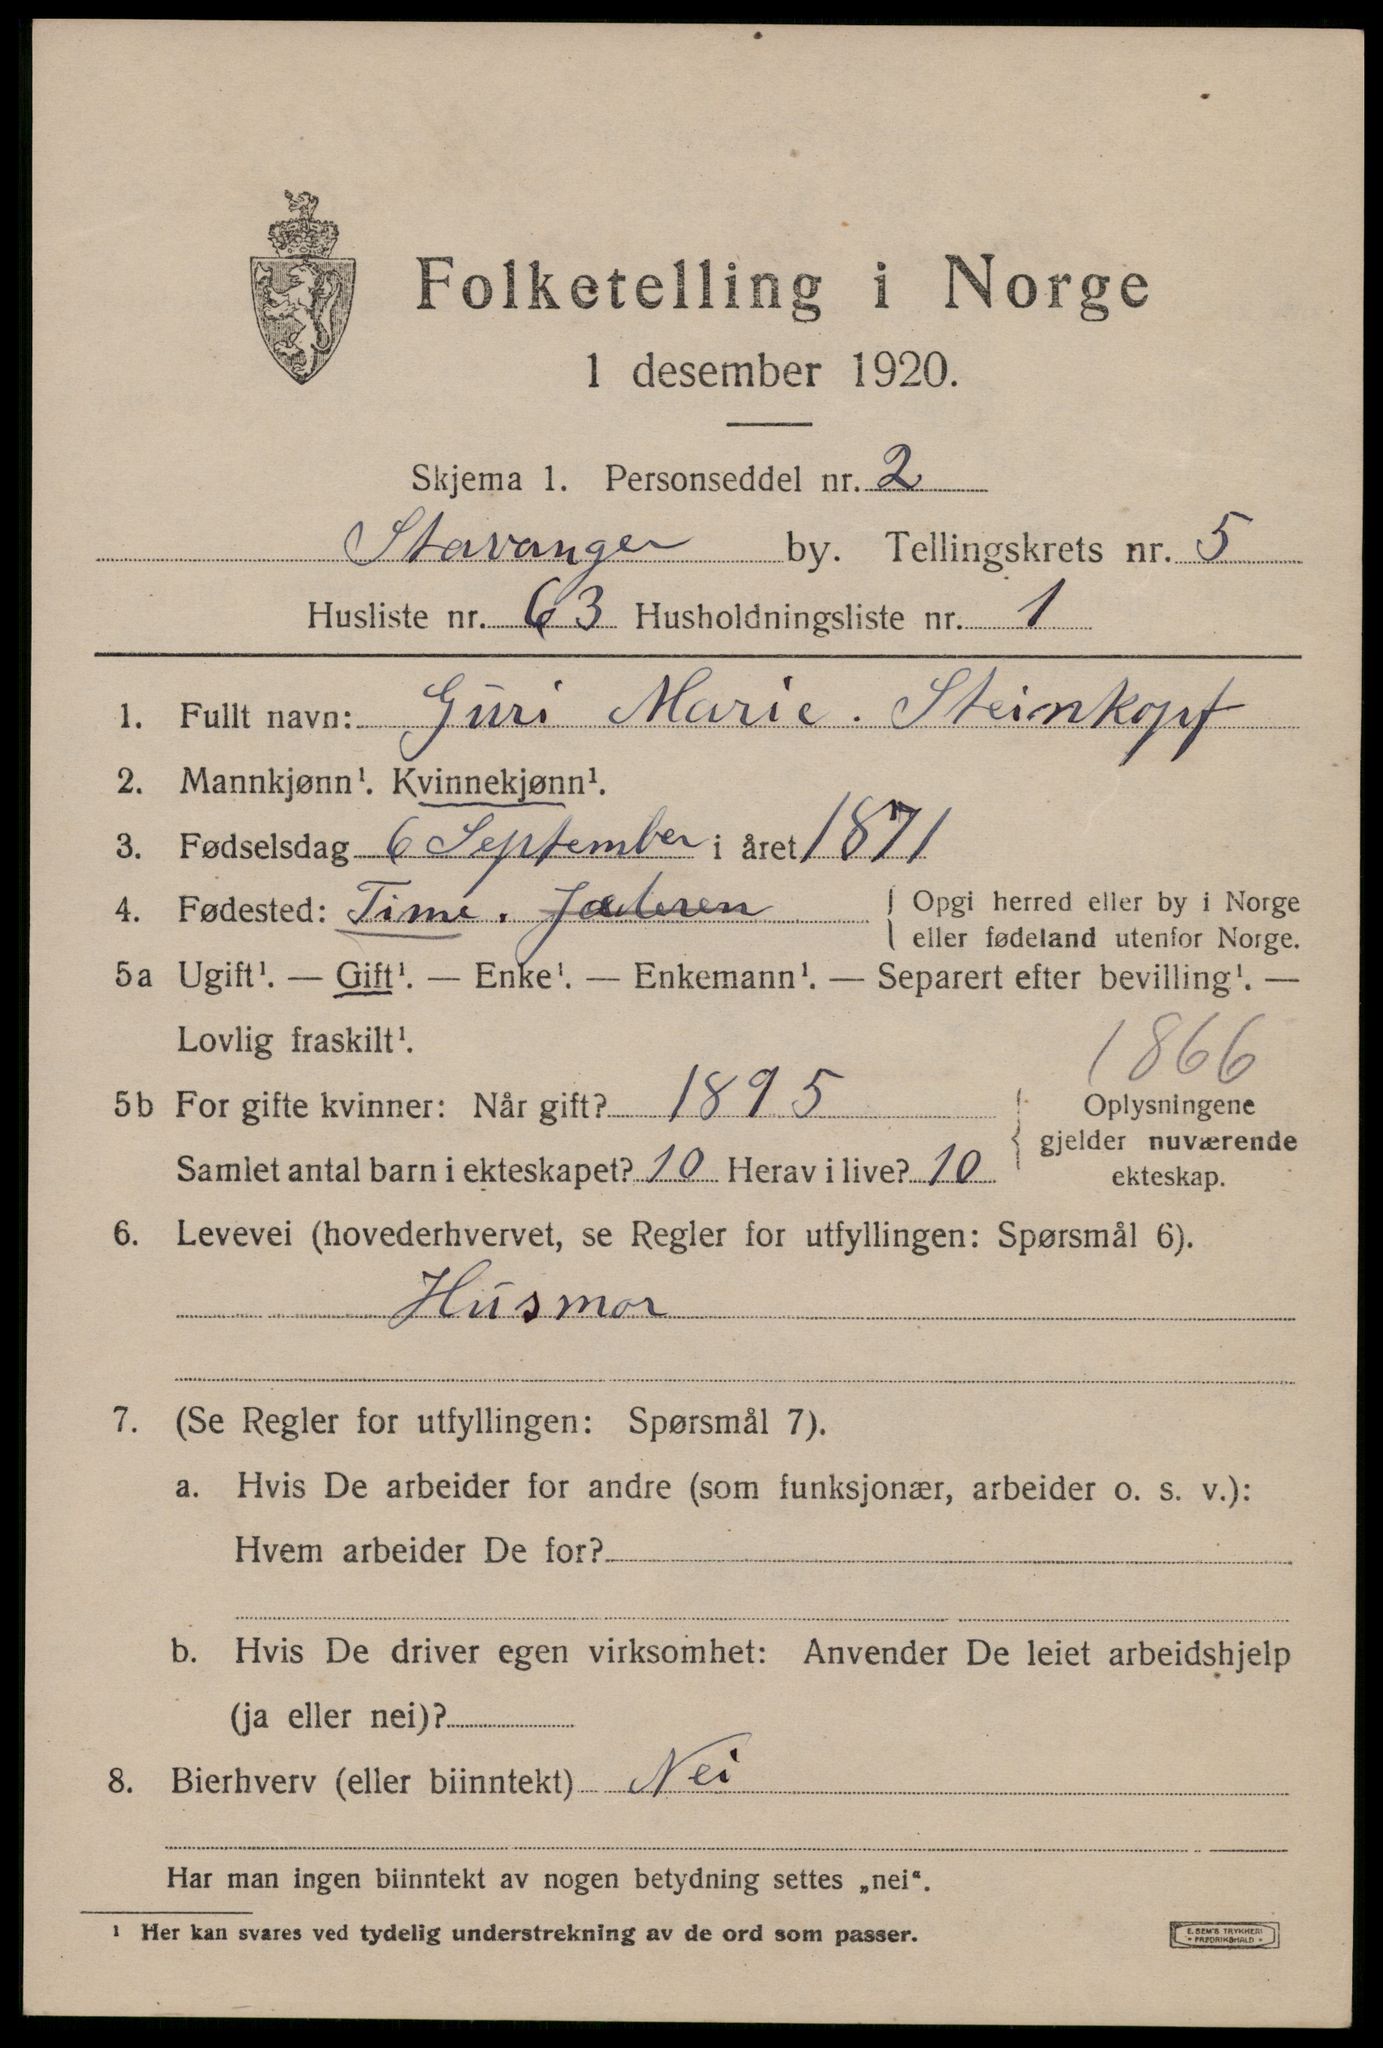 Folketelling i Norge
1 desember 1920.
Skjema 1. Personseddel nr. 2
Stavanger by. Tellingskrets nr. 5
Husliste nr. 63 Husholdningsliste nr. 1
1. Fullt navn: Guri Marie. Steinkopf
2. Mannkjønn¹. Kvinnekjønn¹.
3. Fødselsdag 6 September i året 1871
4. Fødested: Time. Jæderen
Opgi herred eller by i Norge
eller fødeland utenfor Norge.
5a Ugift¹. — Gift¹. — Enke¹. — Enkemann¹. — Separert efter bevilling¹. —
Lovlig fraskilt¹.
1866
5b For gifte kvinner: Når gift? 1895
Samlet antal barn i ekteskapet? 10 Herav i live? 10
Oplysningene
gjelder nuværende
ekteskap.
6. Levevei (hovederhvervet, se Regler for utfyllingen: Spørsmål 6).
Husmor
7. (Se Regler for utfyllingen: Spørsmål 7).
a. Hvis De arbeider for andre (som funksjonær, arbeider o. s. v.):
Hvem arbeider De for?
b. Hvis De driver egen virksomhet: Anvender De leiet arbeidshjelp
(ja eller nei)?
8. Bierhverv (eller biinntekt) Nei
Har man ingen biinntekt av nogen betydning settes „nei“.
¹ Her kan svares ved tydelig understrekning av de ord som passer.
E. SEM'S TRYKKERI
• FREDRIKSHALD •